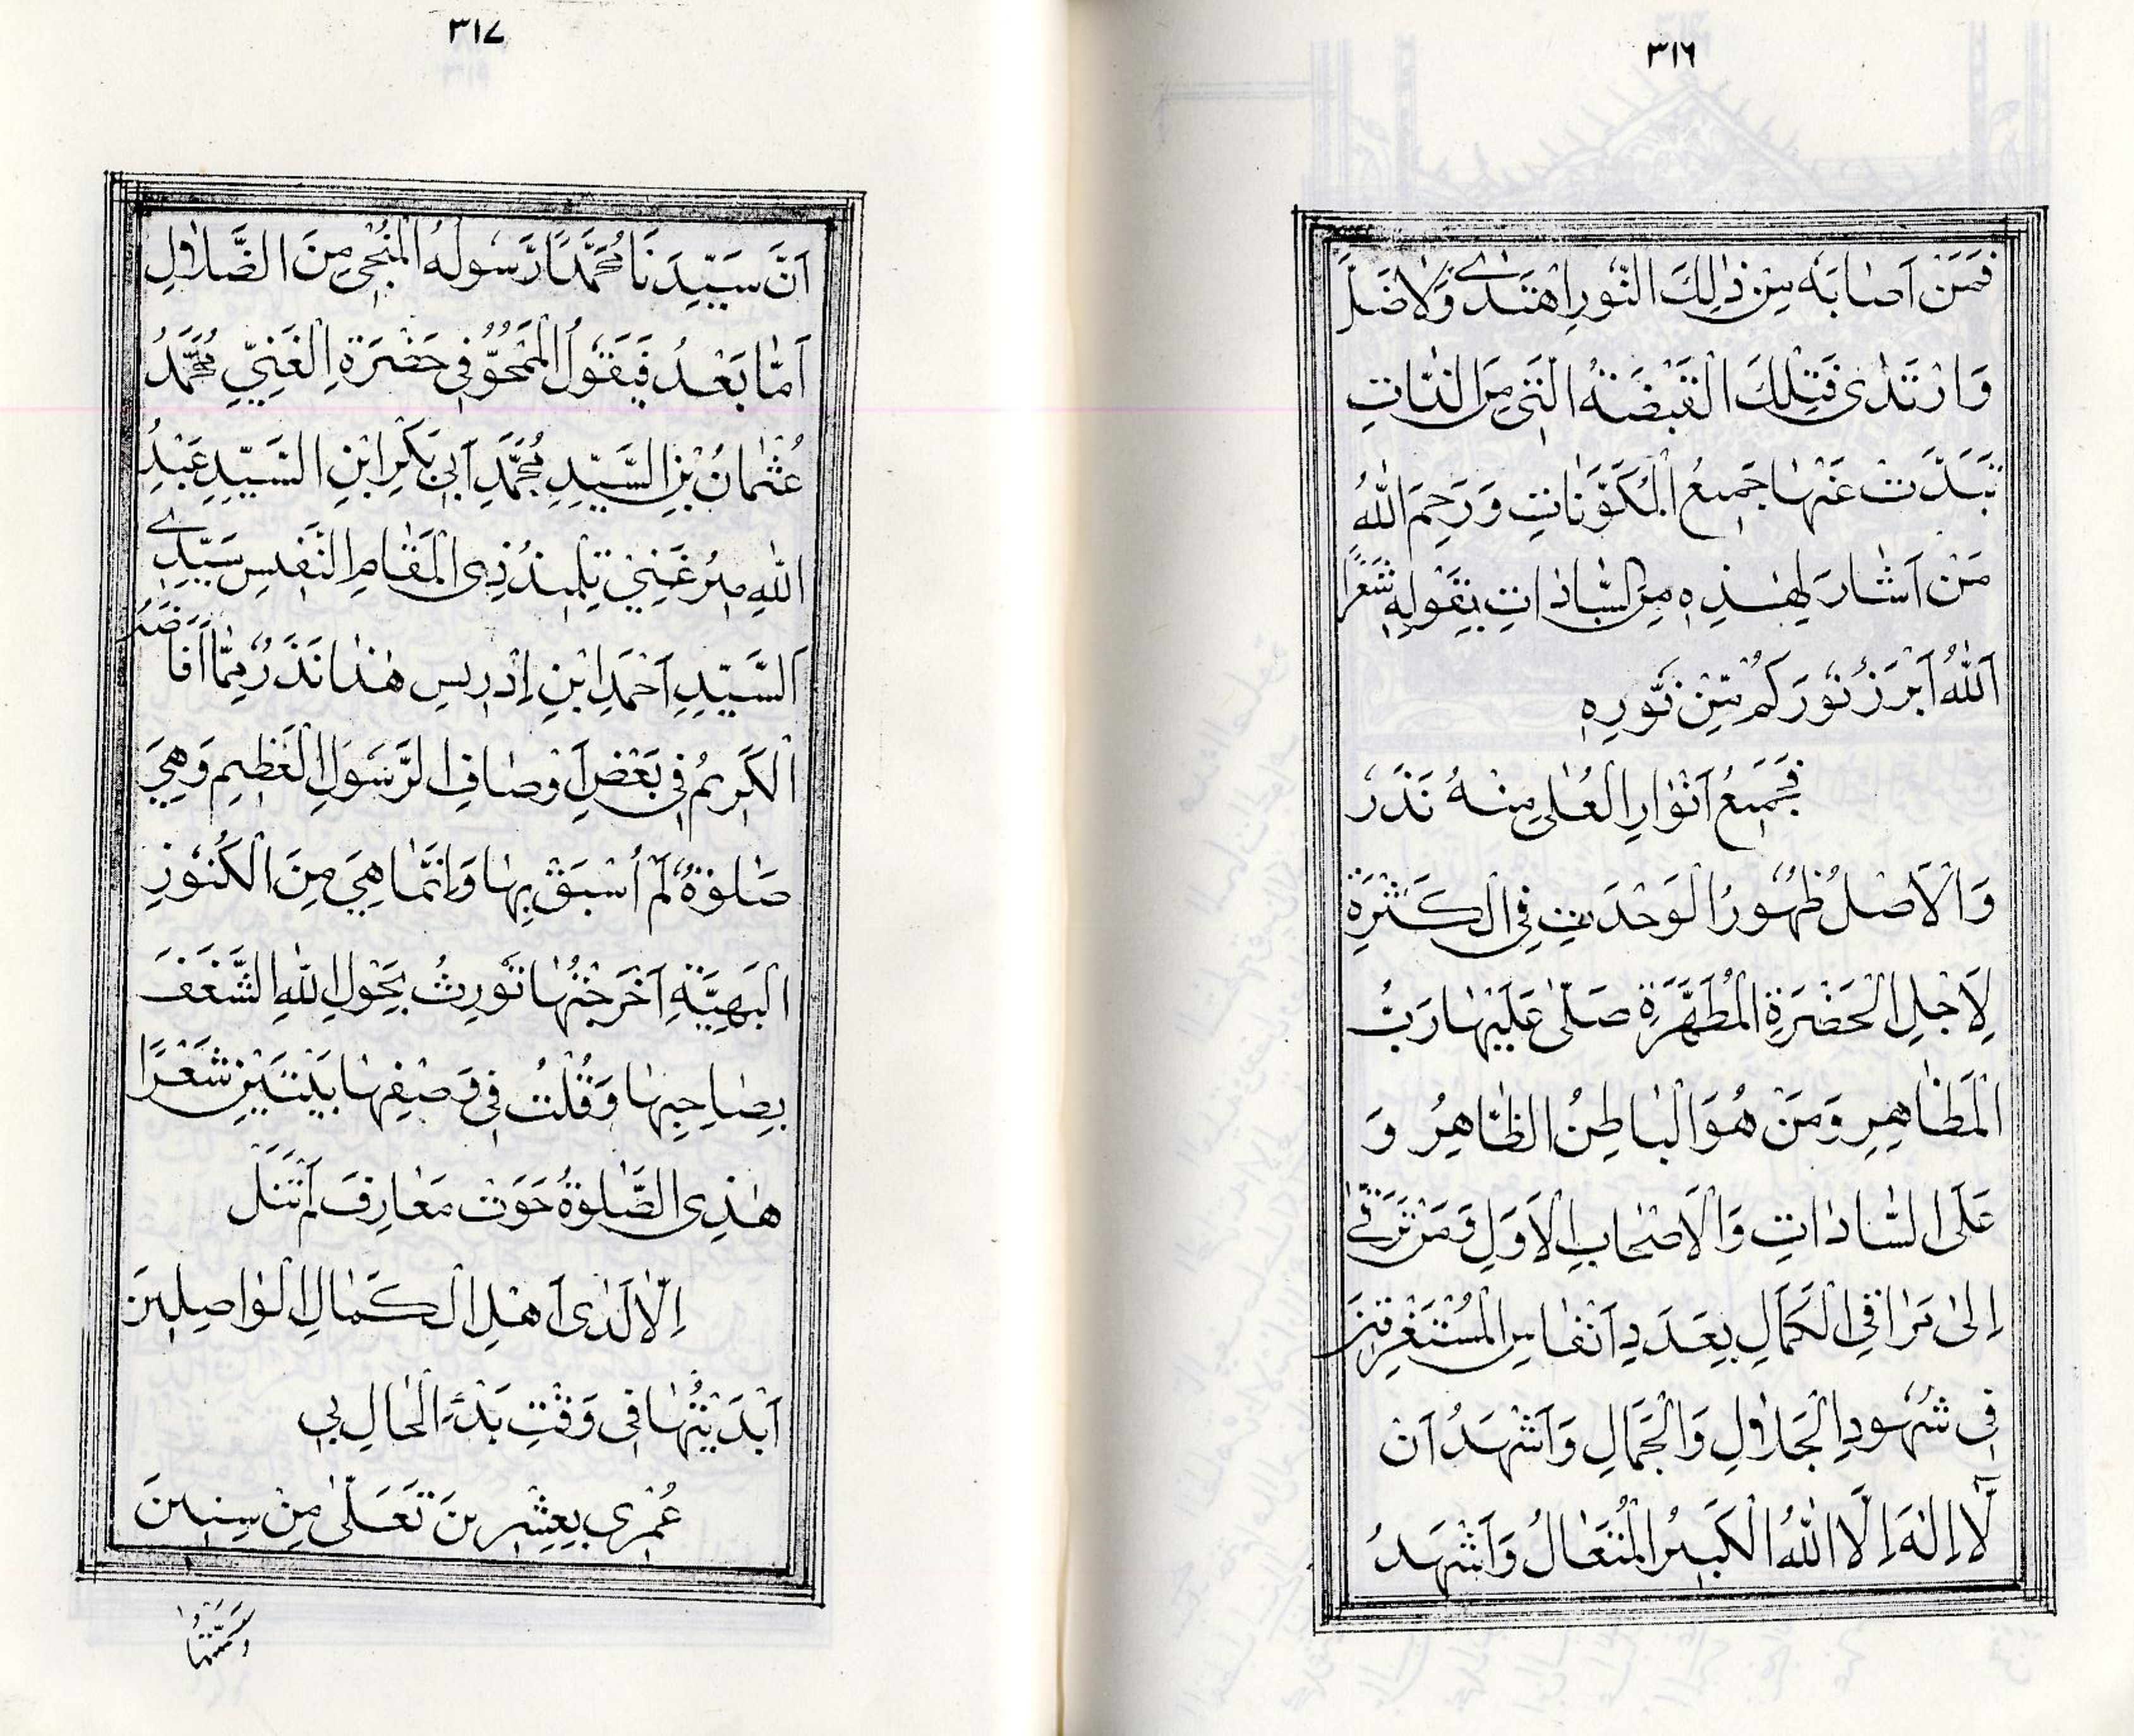 ٣١٦
فَمَنْ اَصَابَهُ مِنْ ذٰلِكَ النُّورِ اهْتَدٰے وَلَاضَلَّ
وَارْتَدٰى فَتِلْكَ الْقَبْضَةُ الَّتِى مِنَ الذَّاتِ
تَبَدَّتْ عَنْهَا جَمِيعُ الْمُكَوَّنَاتِ وَرَحِمَ اللّٰهُ
مَنْ اَشَارَ لِهٰذِهِ مِنَ السَّادَاتِ بِقَوْلِهِ شَعْرًا
اَللّٰهُ اَبْرَزَ نُورَكُمْ مِّنْ نُّورِهِ
فَجَمِيعُ اَنْوَارِ الْعُلٰى مِنْهُ نَذَرْ
وَالْاَصْلُ ظُهُورُ الْوَحْدَتِ فِى الْكَثْرَةِ
لِاَجْلِ الْحَضْرَةِ الْمُطَهَّرَةِ صَلّٰى عَلَيْهَا رَبُّ
الْمَظَاهِرِ وَمَنْ هُوَ الْبَاطِنُ الظَّاهِرُ وَ
عَلَى السَّادَاتِ وَالْاَصْحَابِ الْاُوَلِ وَمَنْ تَرَقّٰے
اِلٰى مَرَاقِى الْكَمَالِ بِعَدَدِ اَنْفَاسِ الْمُسْتَغْرِقِينَ
فِى شُهُودِ الْجَلَالِ وَالْجَمَالِ وَاَشْهَدُ اَنْ
لَّا اِلٰهَ اِلَّا اللّٰهُ الْكَبِيرُ الْمُتَعَالُ وَاَشْهَدُ
٣١٧
اَنَّ سَيِّدَنَا مُحَمَّدًا رَّسُولُهُ الْمُنْجِى مِنَ الضَّلَالِ
اَمَّا بَعْدُ فَيَقُولُ الْمَمْحُوُّ فِى حَضْرَةِ الْغَنِيِّ مُحَمَّدُ
عُثْمَانُ بْنِ السَّيِّدِ مُحَمَّدِ اَبِى بَكْرِ ابْنِ السَّيِّدِ عَبْدِ
اللّٰهِ مِيرْغَنِيْ تِلْمِيذُ ذِى الْمَقَامِ النَّفِيسِ سَيِّدِے
اَلسَّيِّدِ اَحْمَدَ ابْنِ اِدْرِيسِ هٰذَا نَذَرٌ مِّمَّا اَفَاضَهُ
الْكَرِيمُ فِى بَعْضِ اَوْصَافِ الرَّسُولِ الْعَظِيمِ وَهِيَ
صَلٰوةٌ لَّمْ اُسْبَقْ بِهَا وَاِنَّمَا هِيَ مِنَ الْكُنُوزِ
الْبَهِيَّةِ اَخْرَجْتُهَا نُوِّرِتُ بِحَوْلِ اللّٰهِ الشَّغَفَ
بِصَاحِبِهَا وَقُلْتُ فِى وَصْفِهَا بَيْتَيْنِ شَعْرًا
هٰذِى الصَّلٰوةُ حَوَتْ مَعَارِفَ لَمْ تَنَلْ
اِلَّا لَدٰى اَهْلِ الْكَمَالِ الْوَاصِلِينَ
اَبْدَيْتُهَا فِى وَقْتِ بَدْءِ الْحَالِ بِى
عُمْرِى بِعِشْرِينَ تَعَلّٰى مِنْ سِنِينَ